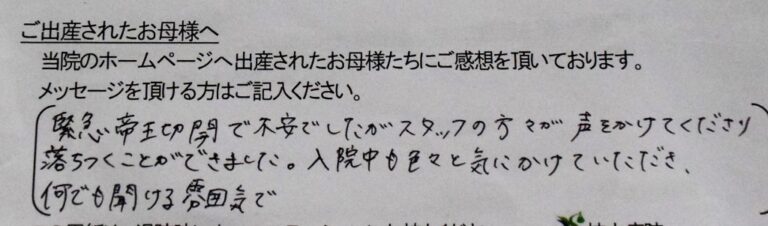 ご出産されたお母様へ
当院のホームページへ出産されたお母様たちにご感想を頂いております。
メッセージを頂ける方はご記入ください。
緊急帝王切開で不安でしたがスタッフの方々が声をかけてくださり
落ちつくことができました。入院中も色々と気にかけていただき、
何でも聞ける雰囲気で